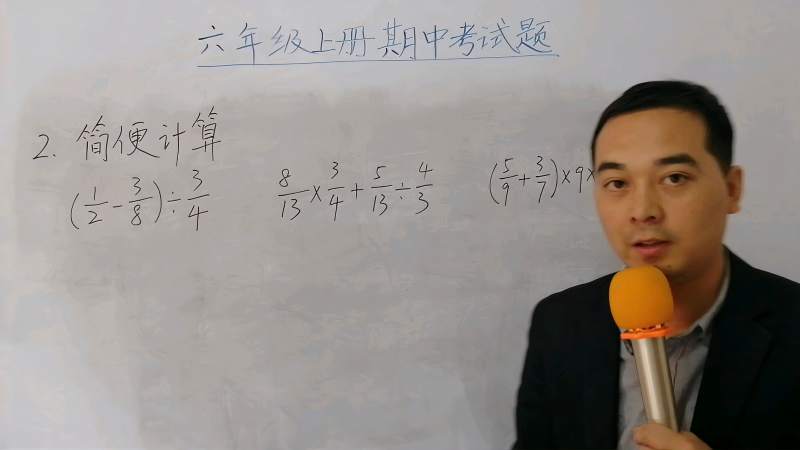 六年级上册期中考试题
2. 简便计算
(1/2-3/8)÷3/4 8/13×3/4+5/13÷4/3 (5/9+3/7)×9×